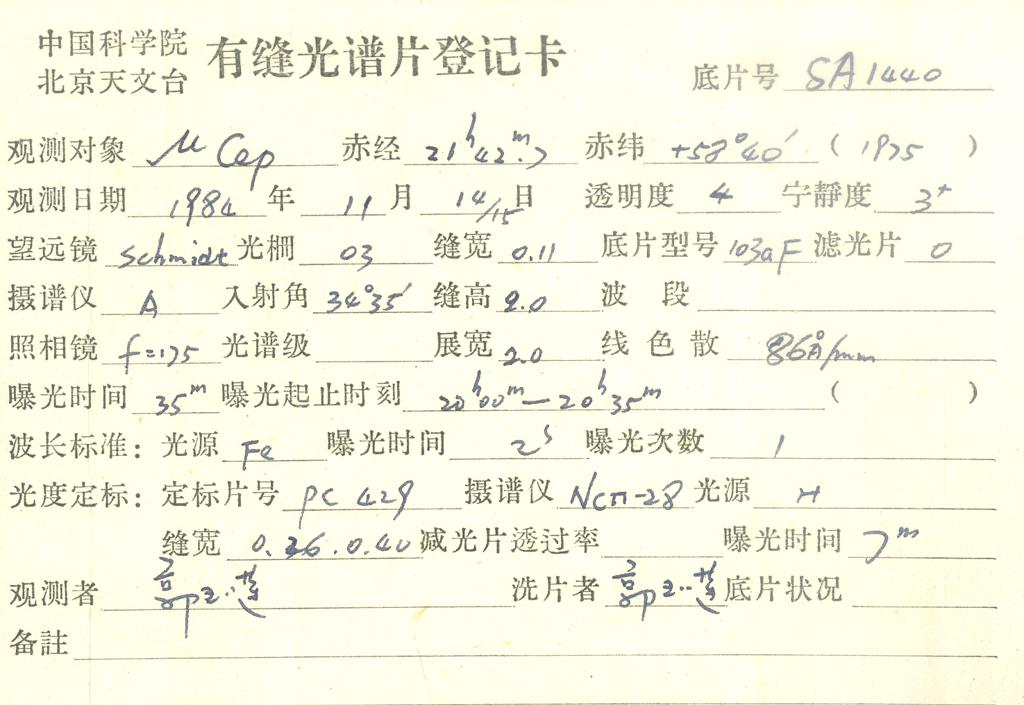 中国科学院
北京天文台
有缝光谱片登记卡
底片号 SA1440
观测对象 μ Cep 赤经 21ʰ42ᵐ.7 赤纬 +58°40′ (1975)
观测日期 1984 年 11 月 14/15 日 透明度 4 宁静度 3⁺
望远镜 Schmidt 光栅 03 缝宽 0.11 底片型号 103aF 滤光片 0
摄谱仪 A 入射角 34°35′ 缝高 2.0 波段
照相镜 f=175 光谱级 展宽 2.0 线色散 86Å/mm
曝光时间 35ᵐ 曝光起止时刻 20ʰ00ᵐ—20ʰ35ᵐ ( )
波长标准: 光源 Fe 曝光时间 2ˢ 曝光次数 1
光度定标: 定标片号 PC 429 摄谱仪 ИСП-28 光源 H
缝宽 0.36.0.40 减光片透过率 曝光时间 7ᵐ
观测者 郭玉莲 洗片者 郭玉莲 底片状况
备註